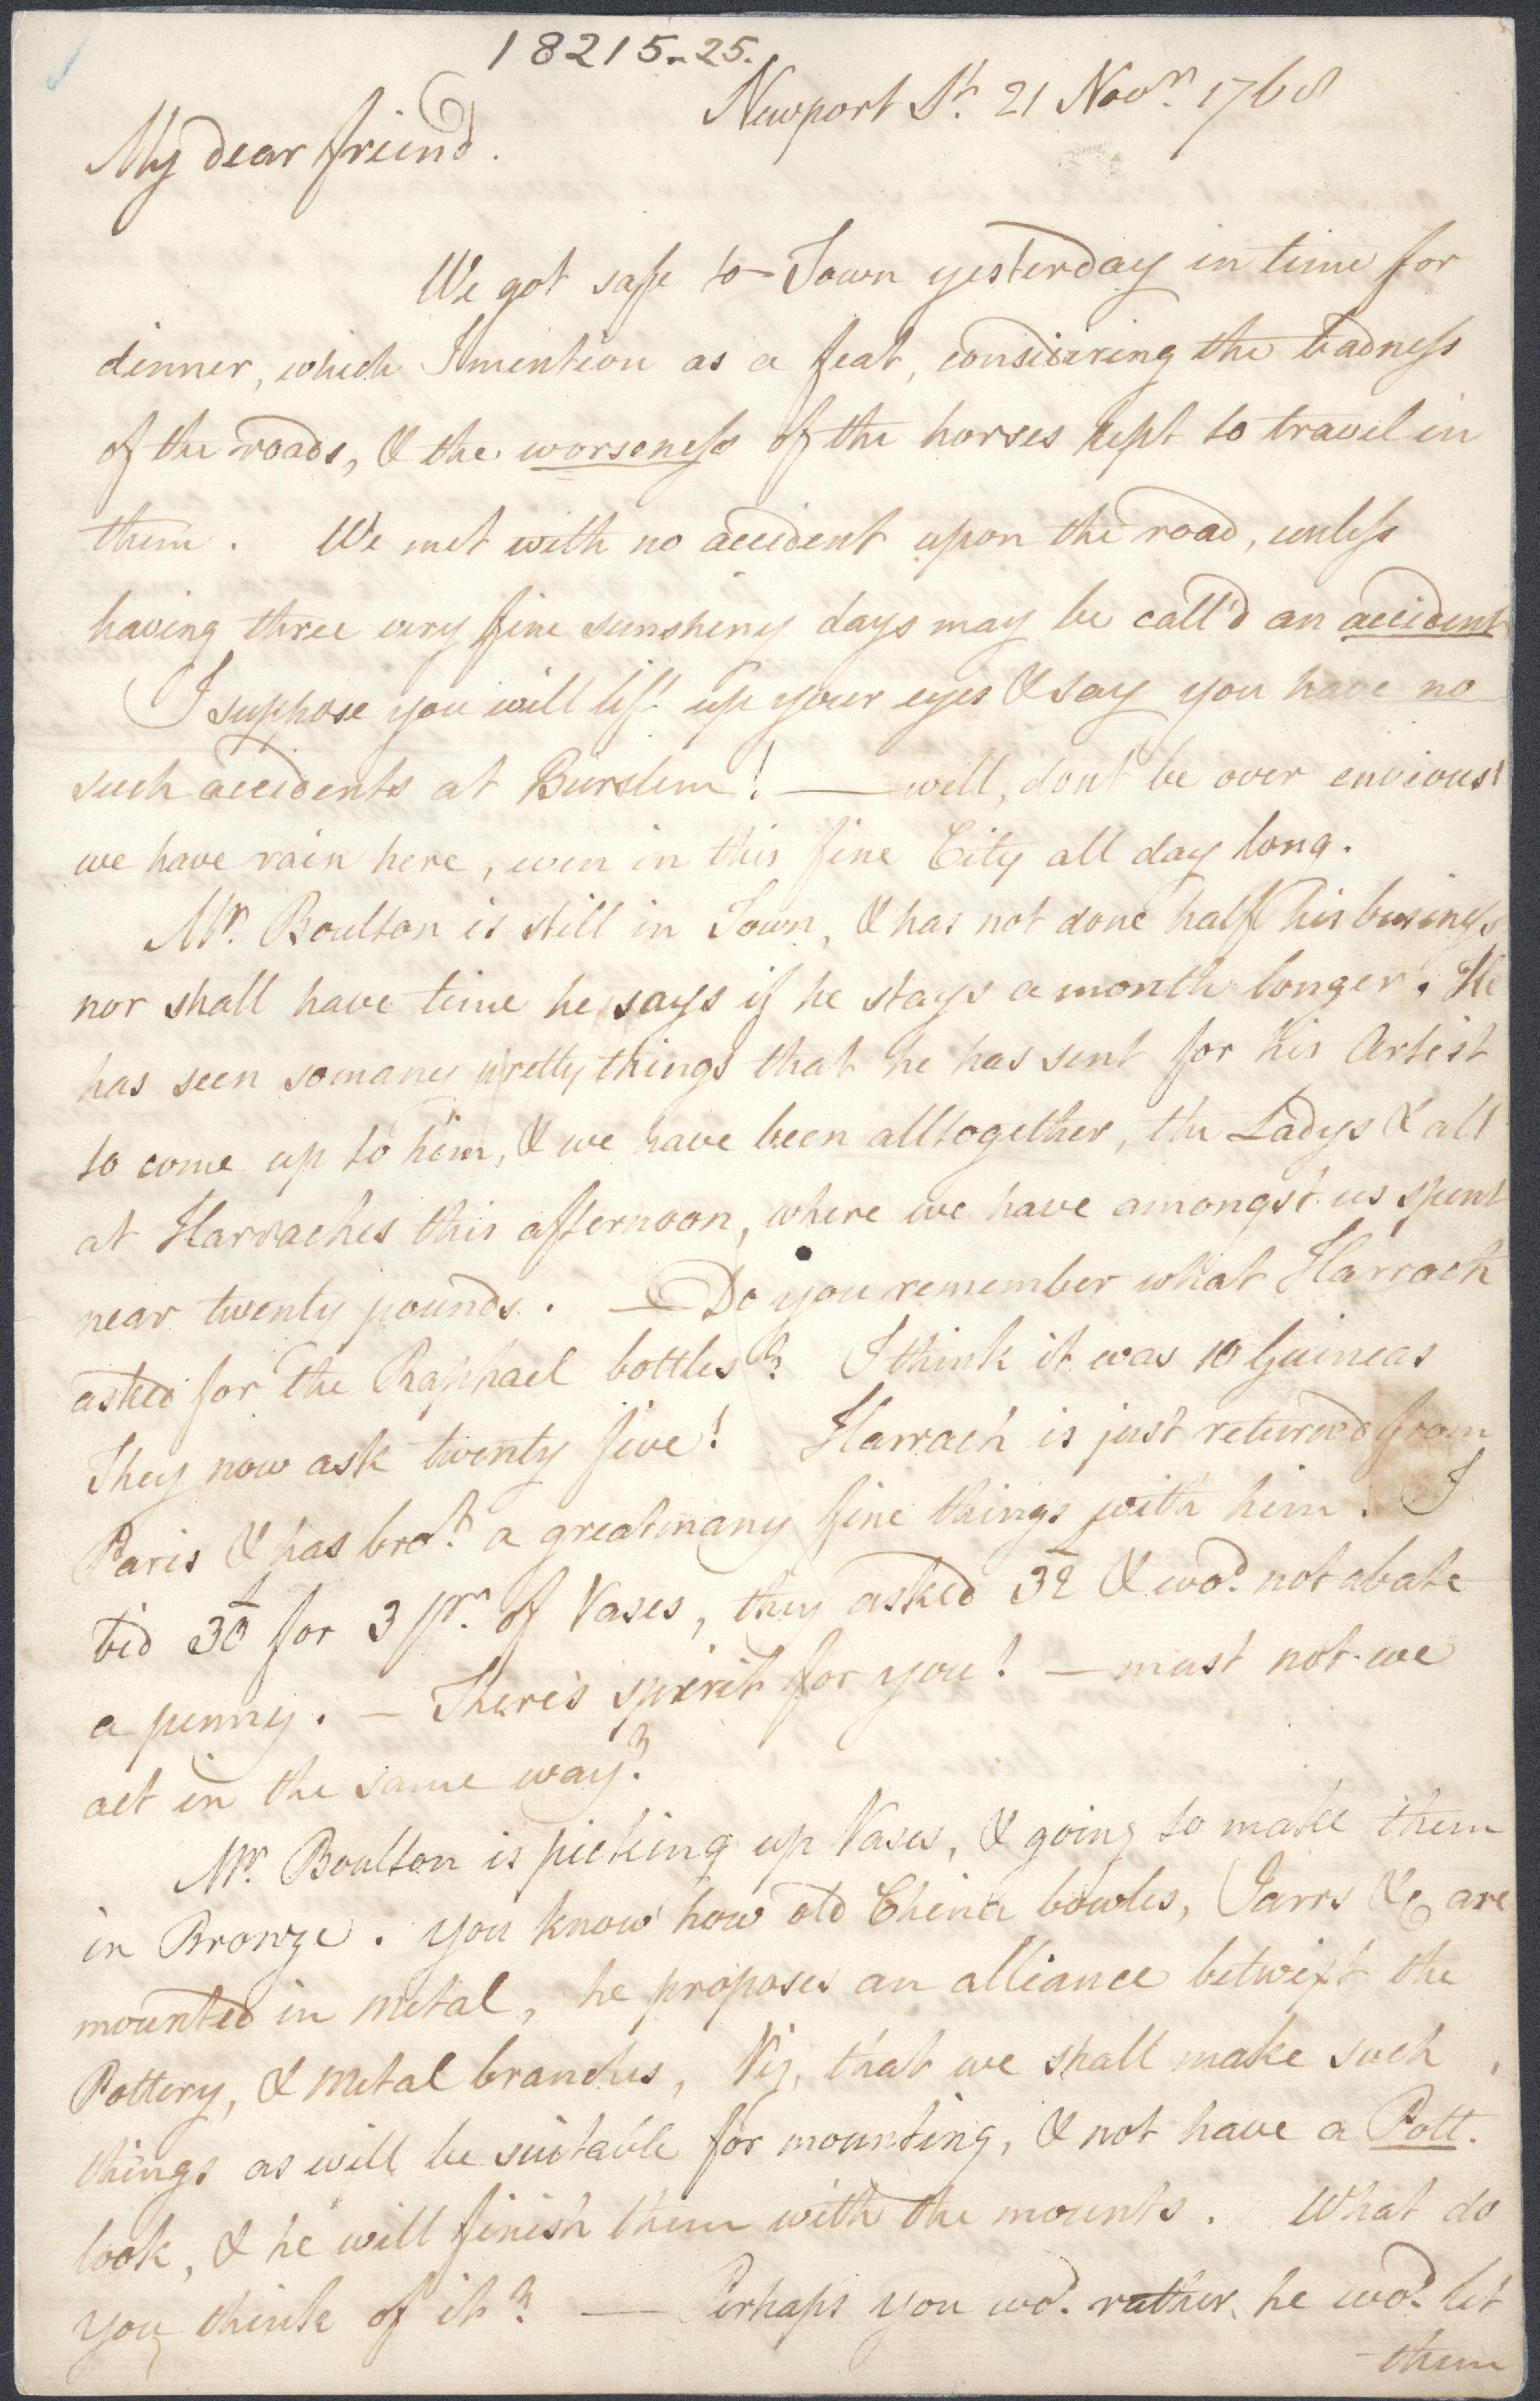 18215-25.
Newport St. 21 Novr. 1768
My dear friend.
We got safe to Town yesterday in time for
dinner, which I mention as a feat, considering the badness
of the roads, & the worseness of the horses kept to travel in
them. We met with no accident upon the road, unless
having three very fine sunshiny days may be call'd an accident
I suppose you will lift up your eyes & say you have no
such accidents at Burslem! — well, dont be over envious!
we have rain here, even in this fine City all day long.
Mr. Boulton is still in Town, & has not done half his business
nor shall have time he says if he stays a month longer. He
has seen somany pretty things that he has sent for his Artist
to come up to him, & we have been alltogether, the Ladys & all
at Harraches this afternoon, where we have amongst us spent
near twenty pounds. — Do you remember what Harrach
asked for the Raphael bottles? I think it was 10 Guineas
They now ask twenty five! Harrach is just returned from
Paris & has brot. a greatmany fine things with him. I
bid 30£ for 3 pr. of Vases, they asked 32£ & wod. not abate
a penny. — There's spirit for you! — must not we
act in the same way?
Mr. Boulton is picking up Vases, & going to make them
in Bronze. You know how old China bowles, Jarrs &c are
mounted in metal, he proposes an alliance betwixt the
Pottery, & Metal branches, Viz, that we shall make such
things as will be suitable for mounting, & not have a Pott.
look, & he will finish them with the mounts. What do
you think of it? — Perhaps you wod. rather he wod. let
them